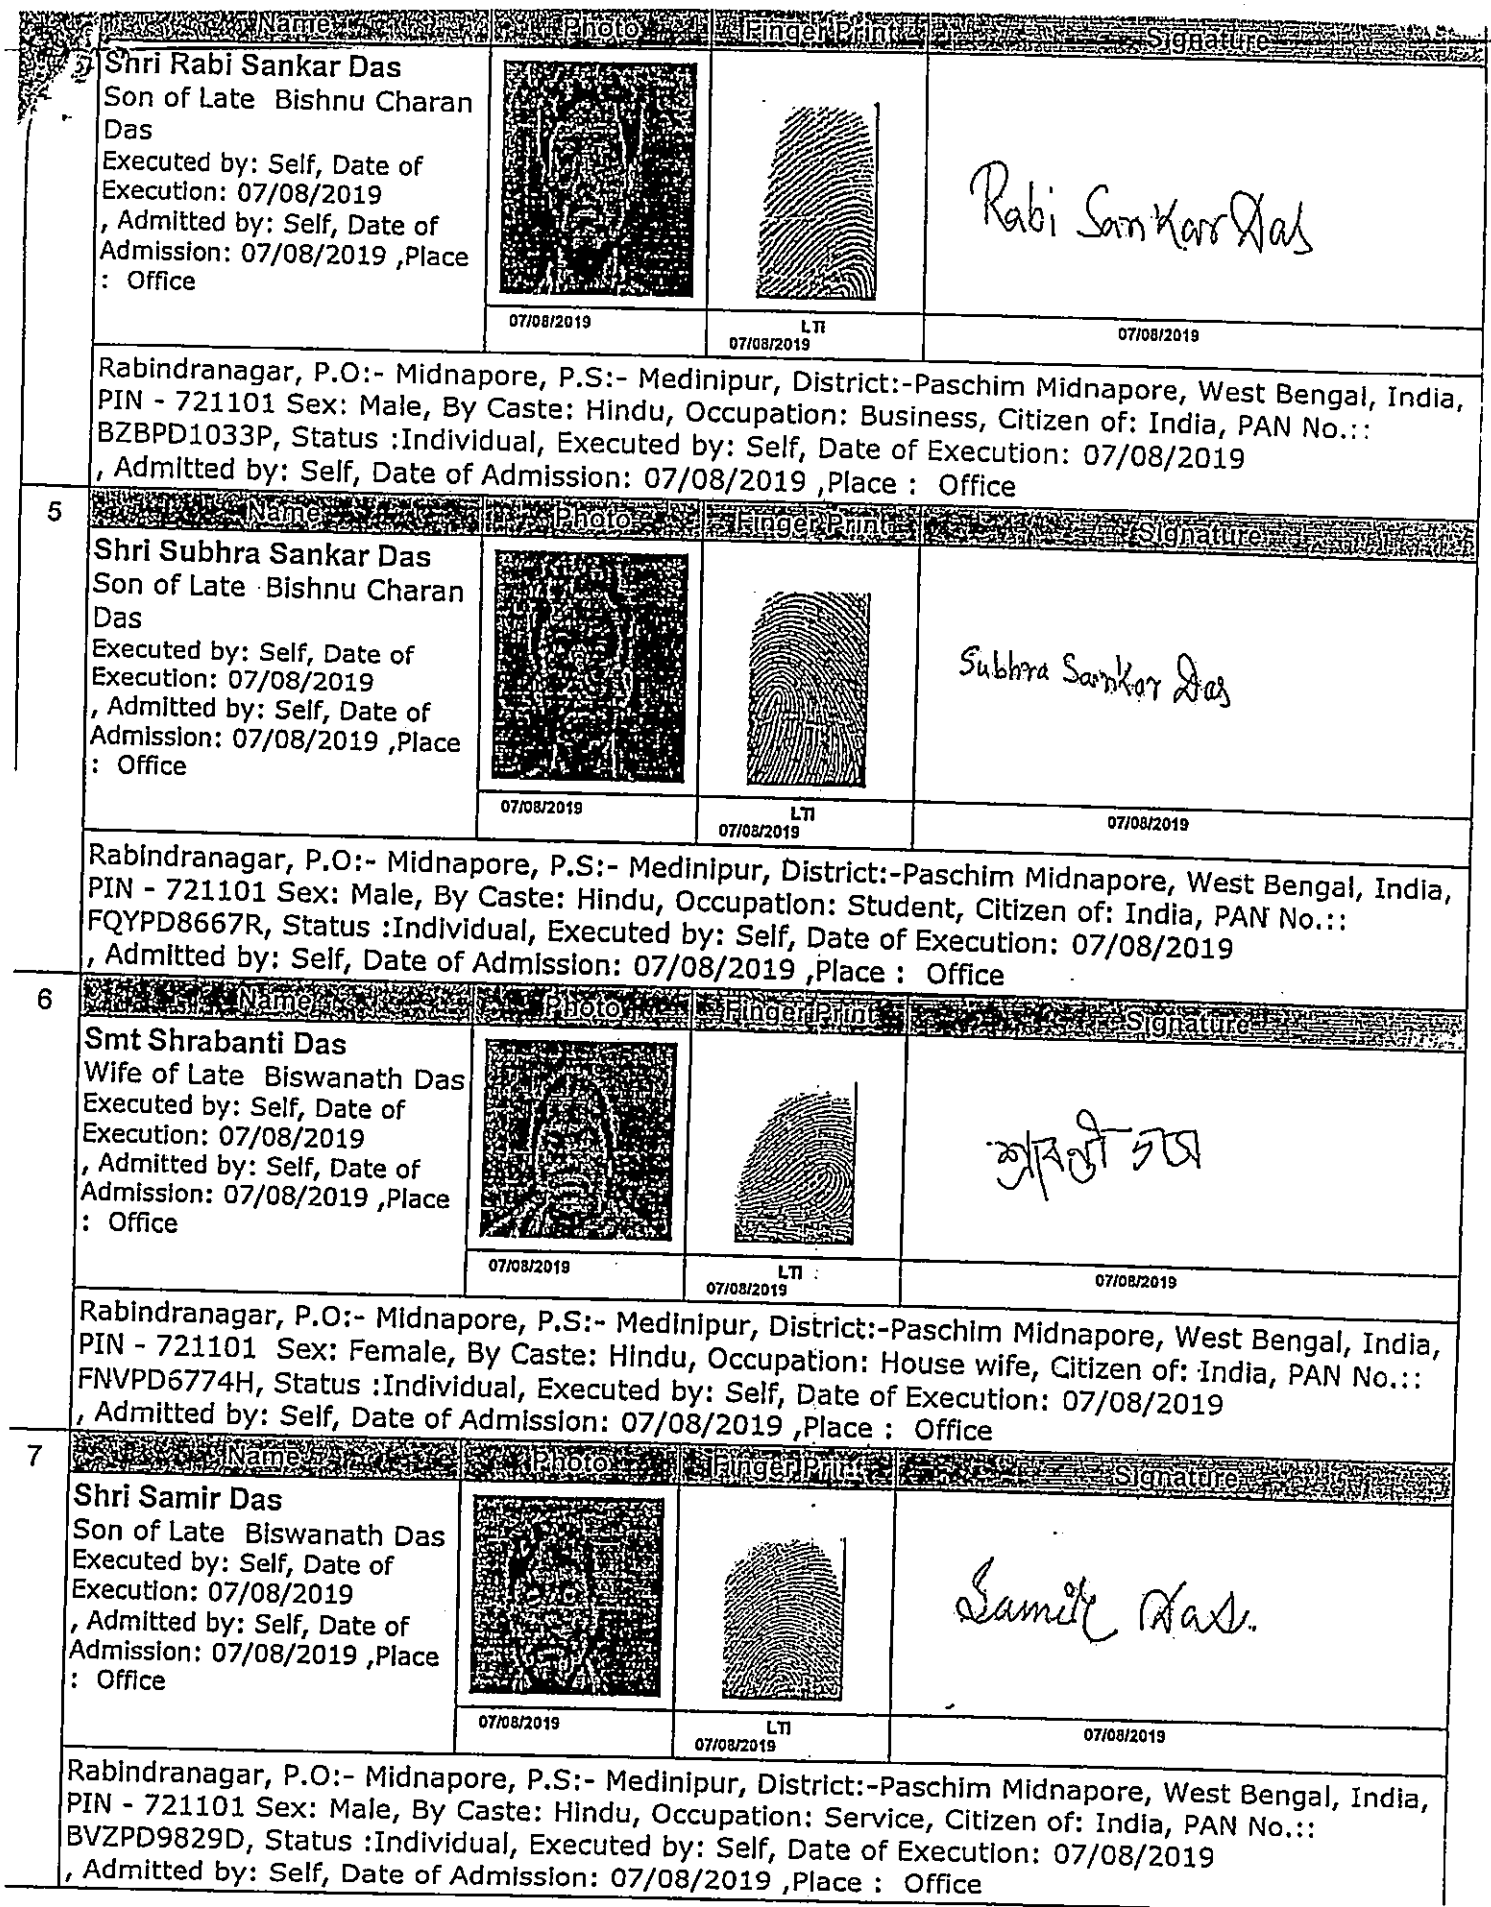 Name Photo Finger Print Signature
Shri Rabi Sankar Das
Son of Late Bishnu Charan
Das
Executed by: Self, Date of
Execution: 07/08/2019
, Admitted by: Self, Date of
Admission: 07/08/2019 ,Place
: Office
Rabi Sankar Das
07/08/2019 LTI 07/08/2019
07/08/2019
Rabindranagar, P.O:- Midnapore, P.S:- Medinipur, District:-Paschim Midnapore, West Bengal, India,
PIN - 721101 Sex: Male, By Caste: Hindu, Occupation: Business, Citizen of: India, PAN No.::
BZBPD1033P, Status :Individual, Executed by: Self, Date of Execution: 07/08/2019
, Admitted by: Self, Date of Admission: 07/08/2019 ,Place : Office
5 Name Photo Finger Print Signature
Shri Subhra Sankar Das
Son of Late Bishnu Charan
Das
Executed by: Self, Date of
Execution: 07/08/2019
, Admitted by: Self, Date of
Admission: 07/08/2019 ,Place
: Office
Subhra Sankar Das
07/08/2019 LTI 07/08/2019
07/08/2019
Rabindranagar, P.O:- Midnapore, P.S:- Medinipur, District:-Paschim Midnapore, West Bengal, India,
PIN - 721101 Sex: Male, By Caste: Hindu, Occupation: Student, Citizen of: India, PAN No.::
FQYPD8667R, Status :Individual, Executed by: Self, Date of Execution: 07/08/2019
, Admitted by: Self, Date of Admission: 07/08/2019 ,Place : Office
6 Name Photo Finger Print Signature
Smt Shrabanti Das
Wife of Late Biswanath Das
Executed by: Self, Date of
Execution: 07/08/2019
, Admitted by: Self, Date of
Admission: 07/08/2019 ,Place
: Office
শ্রাবন্তী দাস
07/08/2019 LTI 07/08/2019
07/08/2019
Rabindranagar, P.O:- Midnapore, P.S:- Medinipur, District:-Paschim Midnapore, West Bengal, India,
PIN - 721101 Sex: Female, By Caste: Hindu, Occupation: House wife, Citizen of: India, PAN No.::
FNVPD6774H, Status :Individual, Executed by: Self, Date of Execution: 07/08/2019
, Admitted by: Self, Date of Admission: 07/08/2019 ,Place : Office
7 Name Photo Finger Print Signature
Shri Samir Das
Son of Late Biswanath Das
Executed by: Self, Date of
Execution: 07/08/2019
, Admitted by: Self, Date of
Admission: 07/08/2019 ,Place
: Office
Samir Das.
07/08/2019 LTI 07/08/2019
07/08/2019
Rabindranagar, P.O:- Midnapore, P.S:- Medinipur, District:-Paschim Midnapore, West Bengal, India,
PIN - 721101 Sex: Male, By Caste: Hindu, Occupation: Service, Citizen of: India, PAN No.::
BVZPD9829D, Status :Individual, Executed by: Self, Date of Execution: 07/08/2019
, Admitted by: Self, Date of Admission: 07/08/2019 ,Place : Office